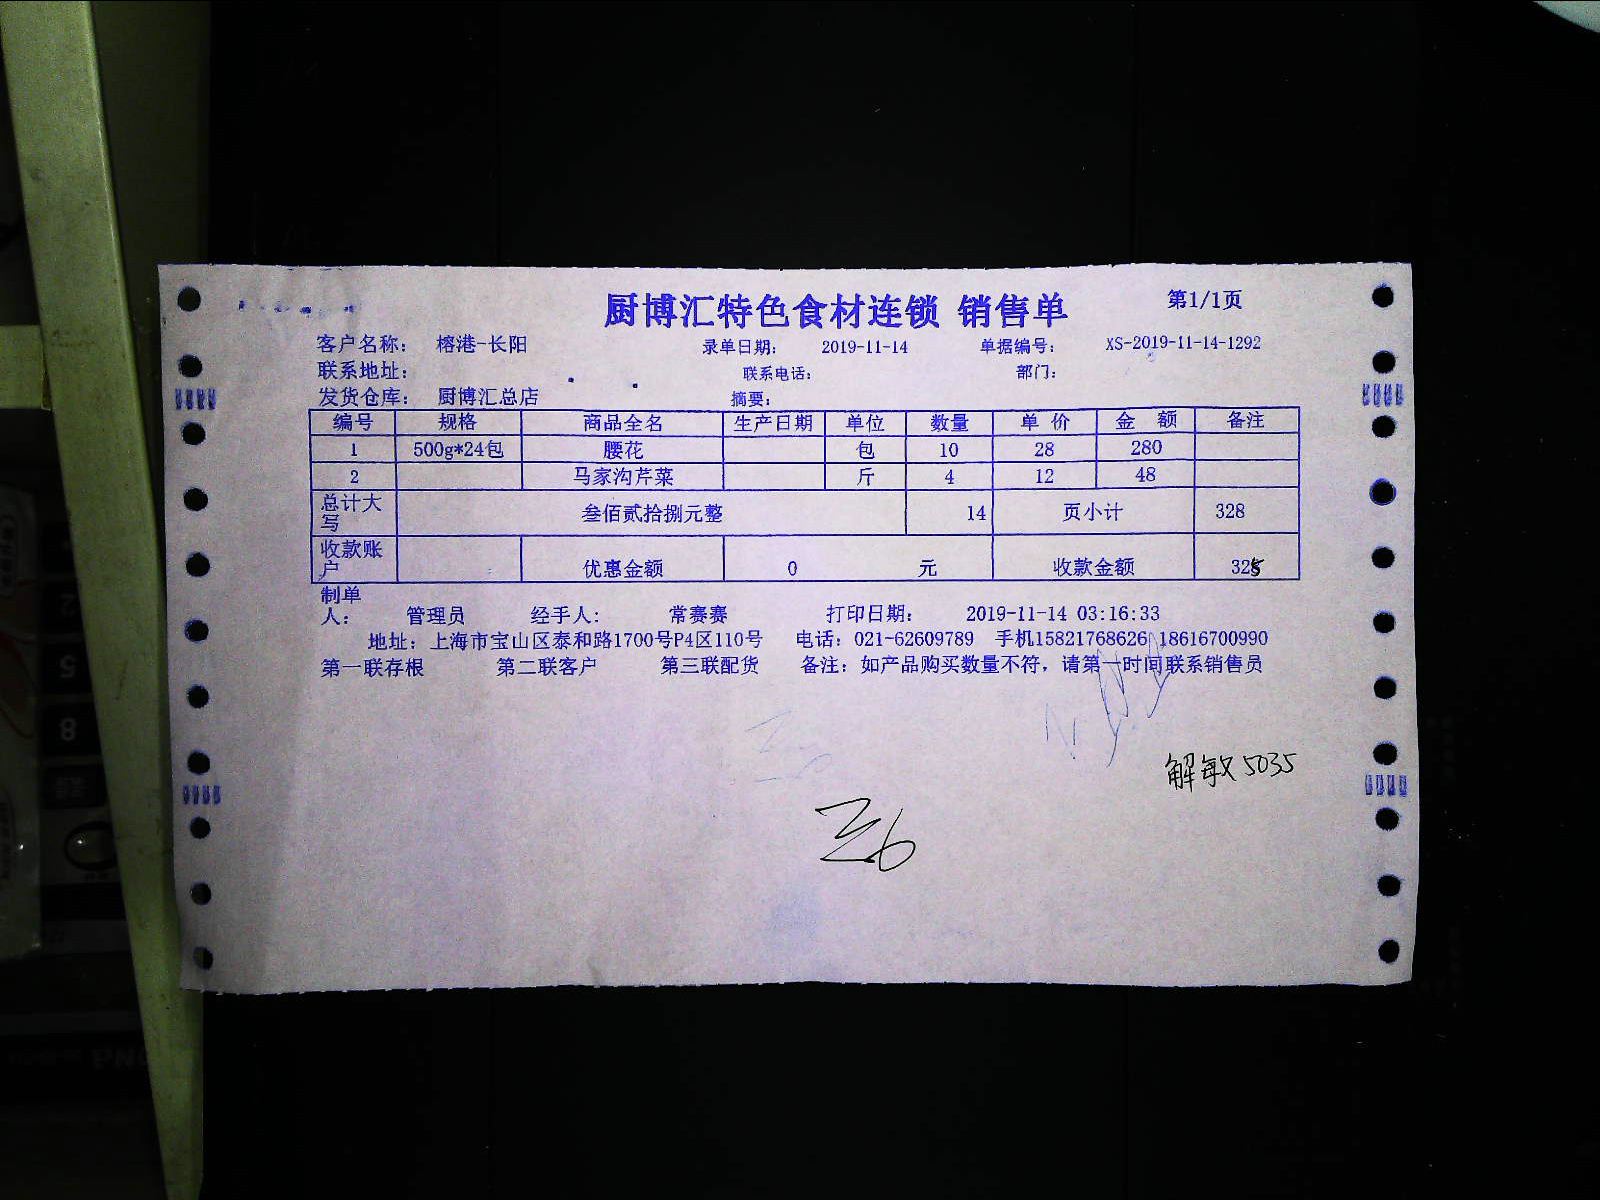 厨博汇特色食材连锁 销售单 第1/1页
客户名称: 榕港-长阳 录单日期: 2019-11-14 单据编号: XS-2019-11-14-1292
联系地址: 联系电话: 部门:
发货仓库: 厨博汇总店 摘要:
编号 规格 商品全名 生产日期 单位 数量 单 价 金 额 备注
1 500g*24包 腰花 包 10 28 280
2 马家沟芹菜 斤 4 12 48
总计大写 叁佰贰拾捌元整 14 页小计 328
收款账户 优惠金额 0 元 收款金额 328
制单人: 管理员 经手人: 常赛赛 打印日期: 2019-11-14 03:16:33
地址: 上海市宝山区泰和路1700号P4区110号 电话: 021-62609789 手机15821768626 18616700990
第一联存根 第二联客户 第三联配货 备注: 如产品购买数量不符, 请第一时间联系销售员
解敏5035